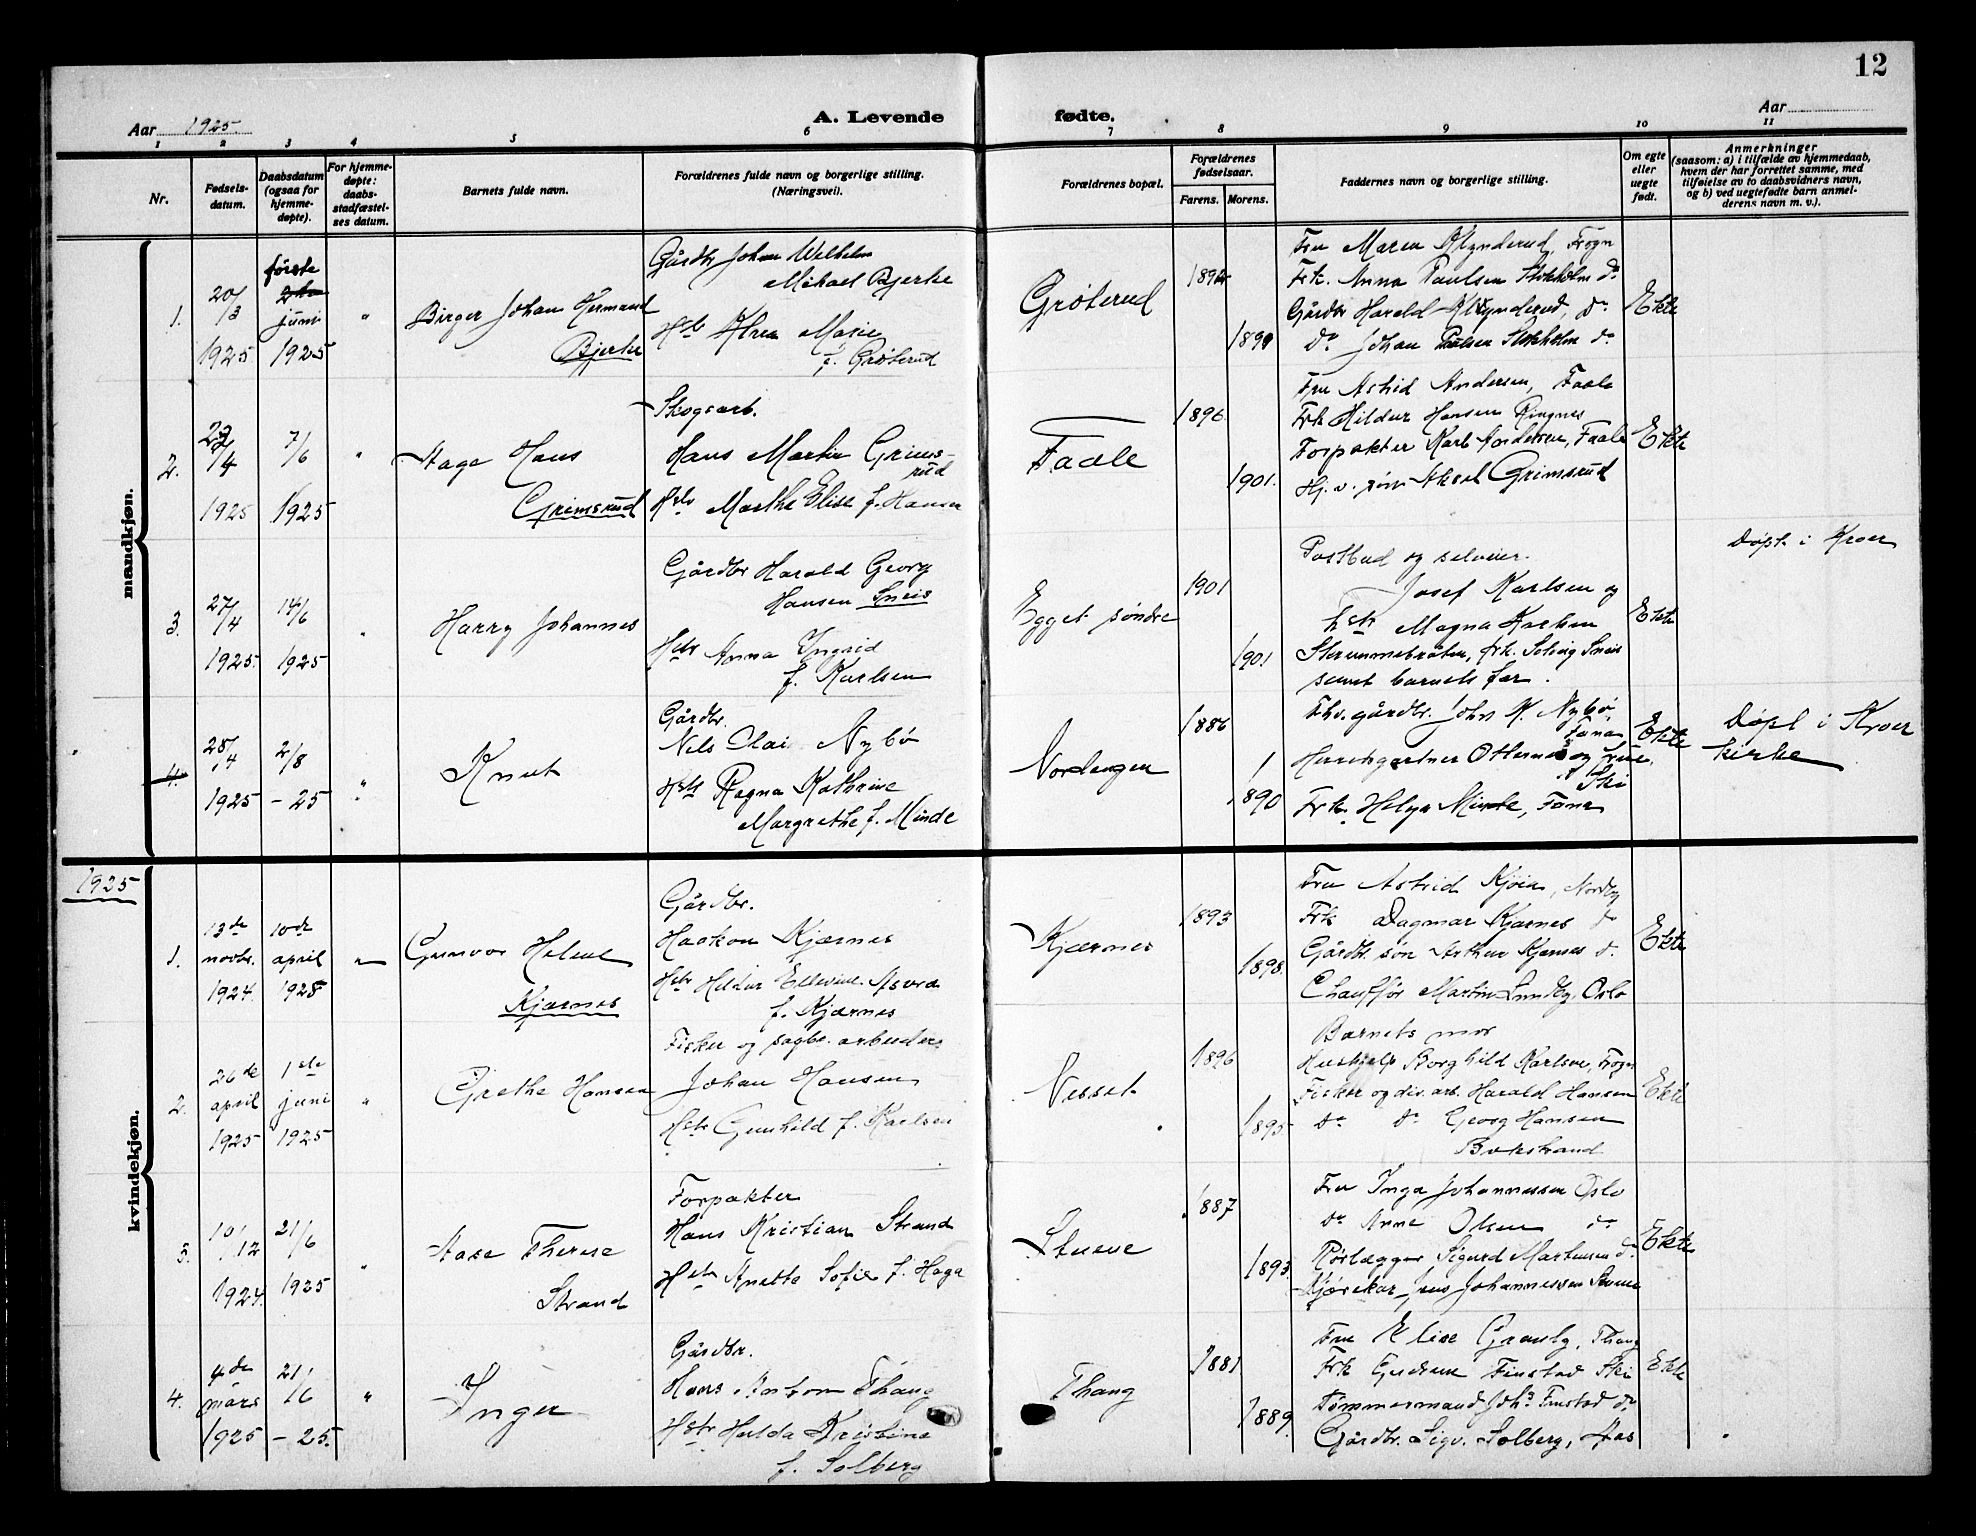 12
Aar 1925.
A. Levende
fødte.
Aar
1 2 3 4 5 6 7 8 9 10 11
Nr.
Fødsels-
datum.
Daabsdatum
(ogsaa for
hjemme-
døpte).
For hjemme-
døpte:
daabs-
stadfæstel-
ses datum.
Barnets fulde navn.
Forældrenes fulde navn og borgerlige stilling.
(Næringsveil).
Forældrenes bopæl.
Forældrenes
fødselsaar.
Farens. Morens.
Faddernes navn og borgerlige stilling.
Om egte
eller
uegte
født.
Anmerkninger
(saasom: a) i tilfælde av hjemmedaab,
hvem der har forrettet samme, med
tilføielse av to daabsvidners navn,
og b) ved uegtefødte barn anmel-
derens navn m. v.).
mandkjøn.
1.
20/3
1925
første
juni
1925
"
Birger Johan Hermand
Bjerke
Gårdbr Johan Wilhelm
Mikael Bjerke
Hstr Marie
f. Grøterud
Grøterud
189
189
Fru Maren Klynderud, Frogn
Frk. Anna Paulsen Stokholm do
Gårdbr Harald Klynderud, do
do Johan Paulsen Stokholm do
Ekte
2.
/4
1925
7/6
1925
"
Aage Hans
Grimsrud
Skogsarb.
Hans Martin Grims-
rud
Hstr Marthe Elise f. Hansen
Faale
1896.
1901.
Fru Astrid Andersen, Faale
Frk Hildur Hansen Ringnes
Forpakter Karl Andersen, Faale
Hj. v. søn Aksel Grimsrud
Ekte
3.
27/4
1925.
14/6
1925
"
Harry Johannes
Gårdbr Harald Georg
Hansen Sneis
Hstr Anna Ingrid
f. Karlsen
Egget søndre
1901
1901
Postbud og selveier.
Josef Karlsen og
hstr Magna Karlsen
frk. Solveig Sneis
samt barnets far.
Ekte
Døpt i Kroer
4.
28/4
1925
2/8
- 25
"
Knut
Gårdbr.
Nels Nybø
Hstr Ragna Kathrine
Margrethe f. Minde
Nordengen
1886
1890
Fhv. gårdbr. John N. Nybø,
Fana
og frue,
Ski
Frk. Helga Minde, Fana
Ekte
Døpt i Kroer
kirke
1925
kvindekjøn.
1.
13de
novbr.
1924.
10de
april
1925
"
Gunvor Helene
Kjærnes
Gårdbr.
Haakon Kjærnes
Hstr Hildur
f. Kjærnes
Kjærnes
1893
1898.
Fru Astrid Kjøia, Nordby
Frk Dagmar Kjærnes do
Gårdbr. søn Arthur Kjærnes do.
Chauffør Martin Lundby, Oslo
Ekte
2.
26de
april
1925
1ste
juni
1925
"
Grethe Hansen
Fisker og sagbr. arbeider
Johan Hansen
Hstr Gunhild f. Karlsen
Nesset
1896
1895.
Barnets mor
Hushjelp Borghild Karlsen, Frogn
Fisker og div. arb. Harald Hansen
do do Georg Hansen
Bokstrand
Ekte
3.
10/12
1924.
21/6
1925
"
Aase Therese
Strand
Forpakter
Hans Kristian Strand
Hstr Anette Sofie f. Haga
Stuene
1887
1893.
Fru Inga Johannessen Oslo
do Anne Olsen do
Rørlægger Sigurd Martinsen do.
Kjørekar Jens Johannessen
Ekte
4.
4de
mars
1925
21/6
- 25.
"
Inger
Gårdbr.
Hans Thang
Hstr Hulda Kristine
f. Solberg
Thang
1881
1889.
Fru Elise Granby, Thang
Frk Gudrun Finstad Ski
Tømmermand Johs Finstad do
Gårdbr. Sigv. Solberg, Aas
Ekte